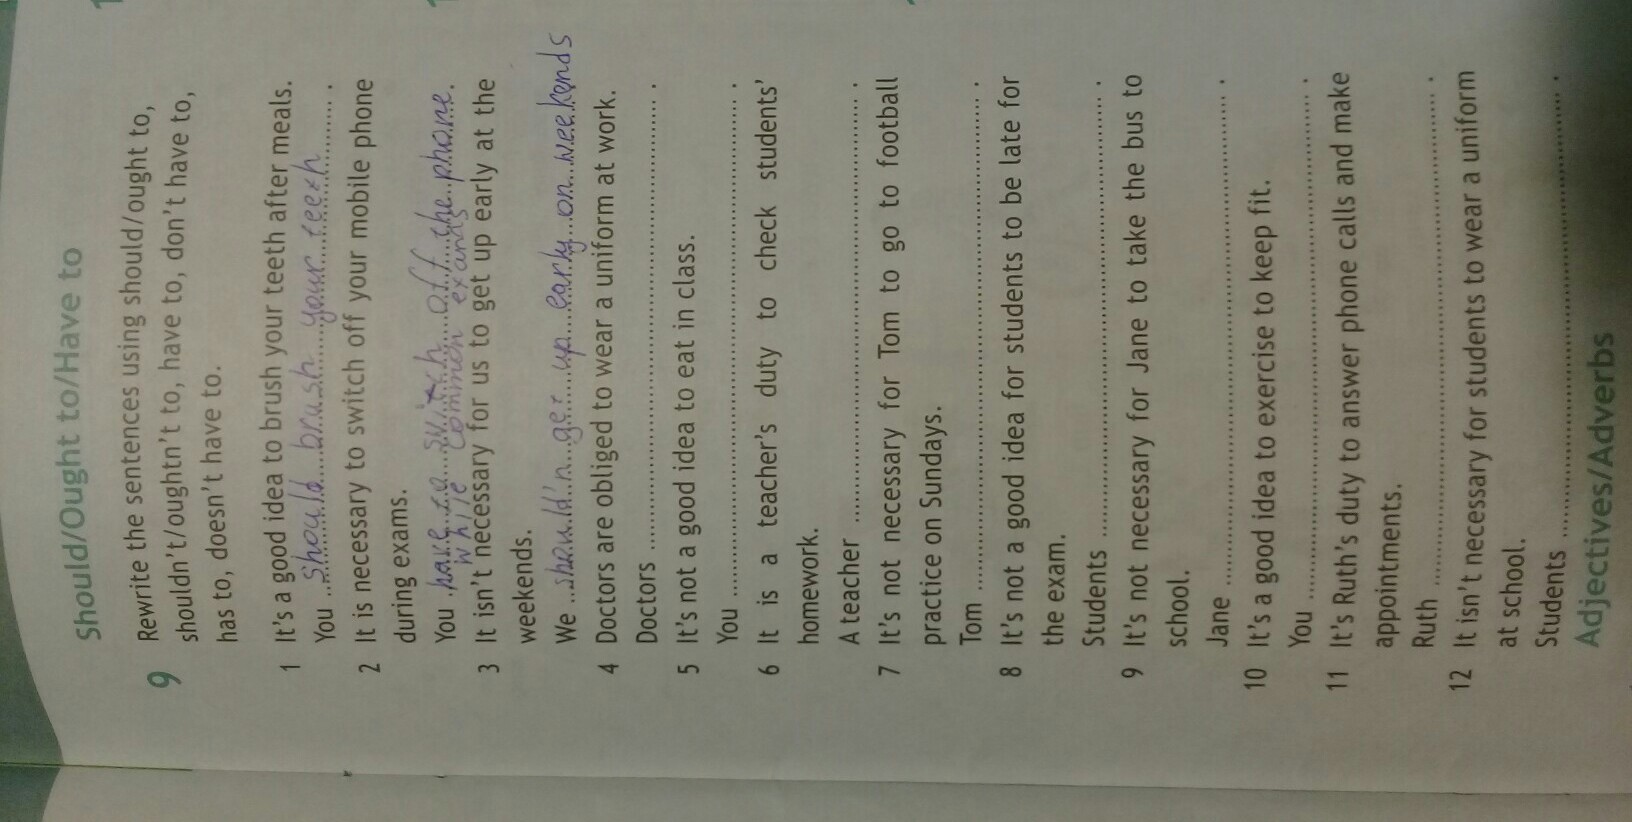 Should/Ought to/Have to
9 Rewrite the sentences using should/ought to,
shouldn't/oughtn't to, have to, don't have to,
has to, doesn't have to.
1 It's a good idea to brush your teeth after meals.
You should brush your teeth .
2 It is necessary to switch off your mobile phone
during exams.
You have to switch off the phone.
while common exands
3 It isn't necessary for us to get up early at the
weekends.
We should'n get up early on weekends
4 Doctors are obliged to wear a uniform at work.
Doctors .
5 It's not a good idea to eat in class.
You .
6 It is a teacher's duty to check students'
homework.
A teacher .
7 It's not necessary for Tom to go to football
practice on Sundays.
Tom .
8 It's not a good idea for students to be late for
the exam.
Students .
9 It's not necessary for Jane to take the bus to
school.
Jane .
10 It's a good idea to exercise to keep fit.
You .
11 It's Ruth's duty to answer phone calls and make
appointments.
Ruth .
12 It isn't necessary for students to wear a uniform
at school.
Students .
Adjectives/Adverbs